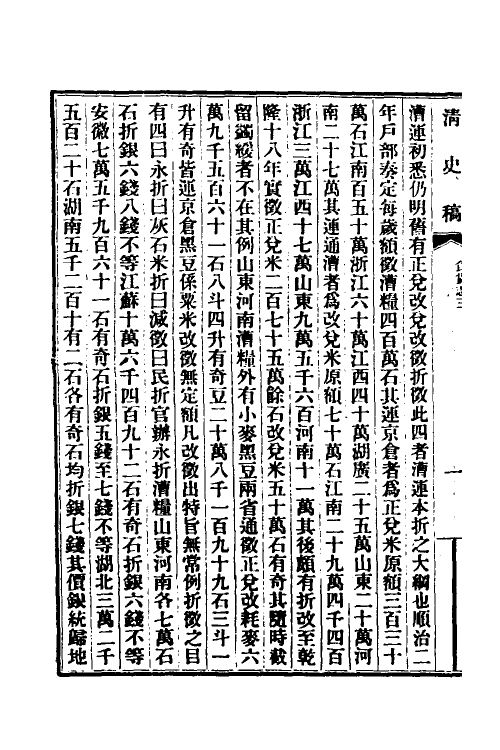 清史稿
食貨志三
一
漕運初悉仍明舊有正兌改兌改徵折徵此四者漕運本折之大綱也順治二
年戶部奏定每歲額徵漕糧四百萬石其運京倉者爲正兌米原額三百三十
萬石江南百五十萬浙江六十萬江西四十萬湖廣二十五萬山東二十萬河
南二十七萬其運通漕者爲改兌米原額七十萬石江南二十九萬四千四百
浙江三萬江西十七萬山東九萬五千六百河南十一萬其後頗有折改至乾
隆十八年實徵正兌米二百七十五萬餘石改兌米五十萬石有奇其隨時截
留蠲緩者不在其例山東河南漕糧外有小麥黑豆兩省通徵正兌改耗麥六
萬九千五百六十一石八斗四升有奇豆二十萬八千一百九十九石三斗一
升有奇皆運京倉黑豆係粟米改徵無定額凡改徵出特旨無常例折徵之目
有四曰永折曰灰石米折曰減徵曰民折官辦永折漕糧山東河南各七萬石
石折銀六錢八錢不等江蘇十萬六千四百九十二石有奇石折銀六錢不等
安徽七萬五千九百六十一石有奇石折銀五錢至七錢不等湖北三萬二千
五百二十石湖南五千二百十有二石各有奇石均折銀七錢其價銀統歸地